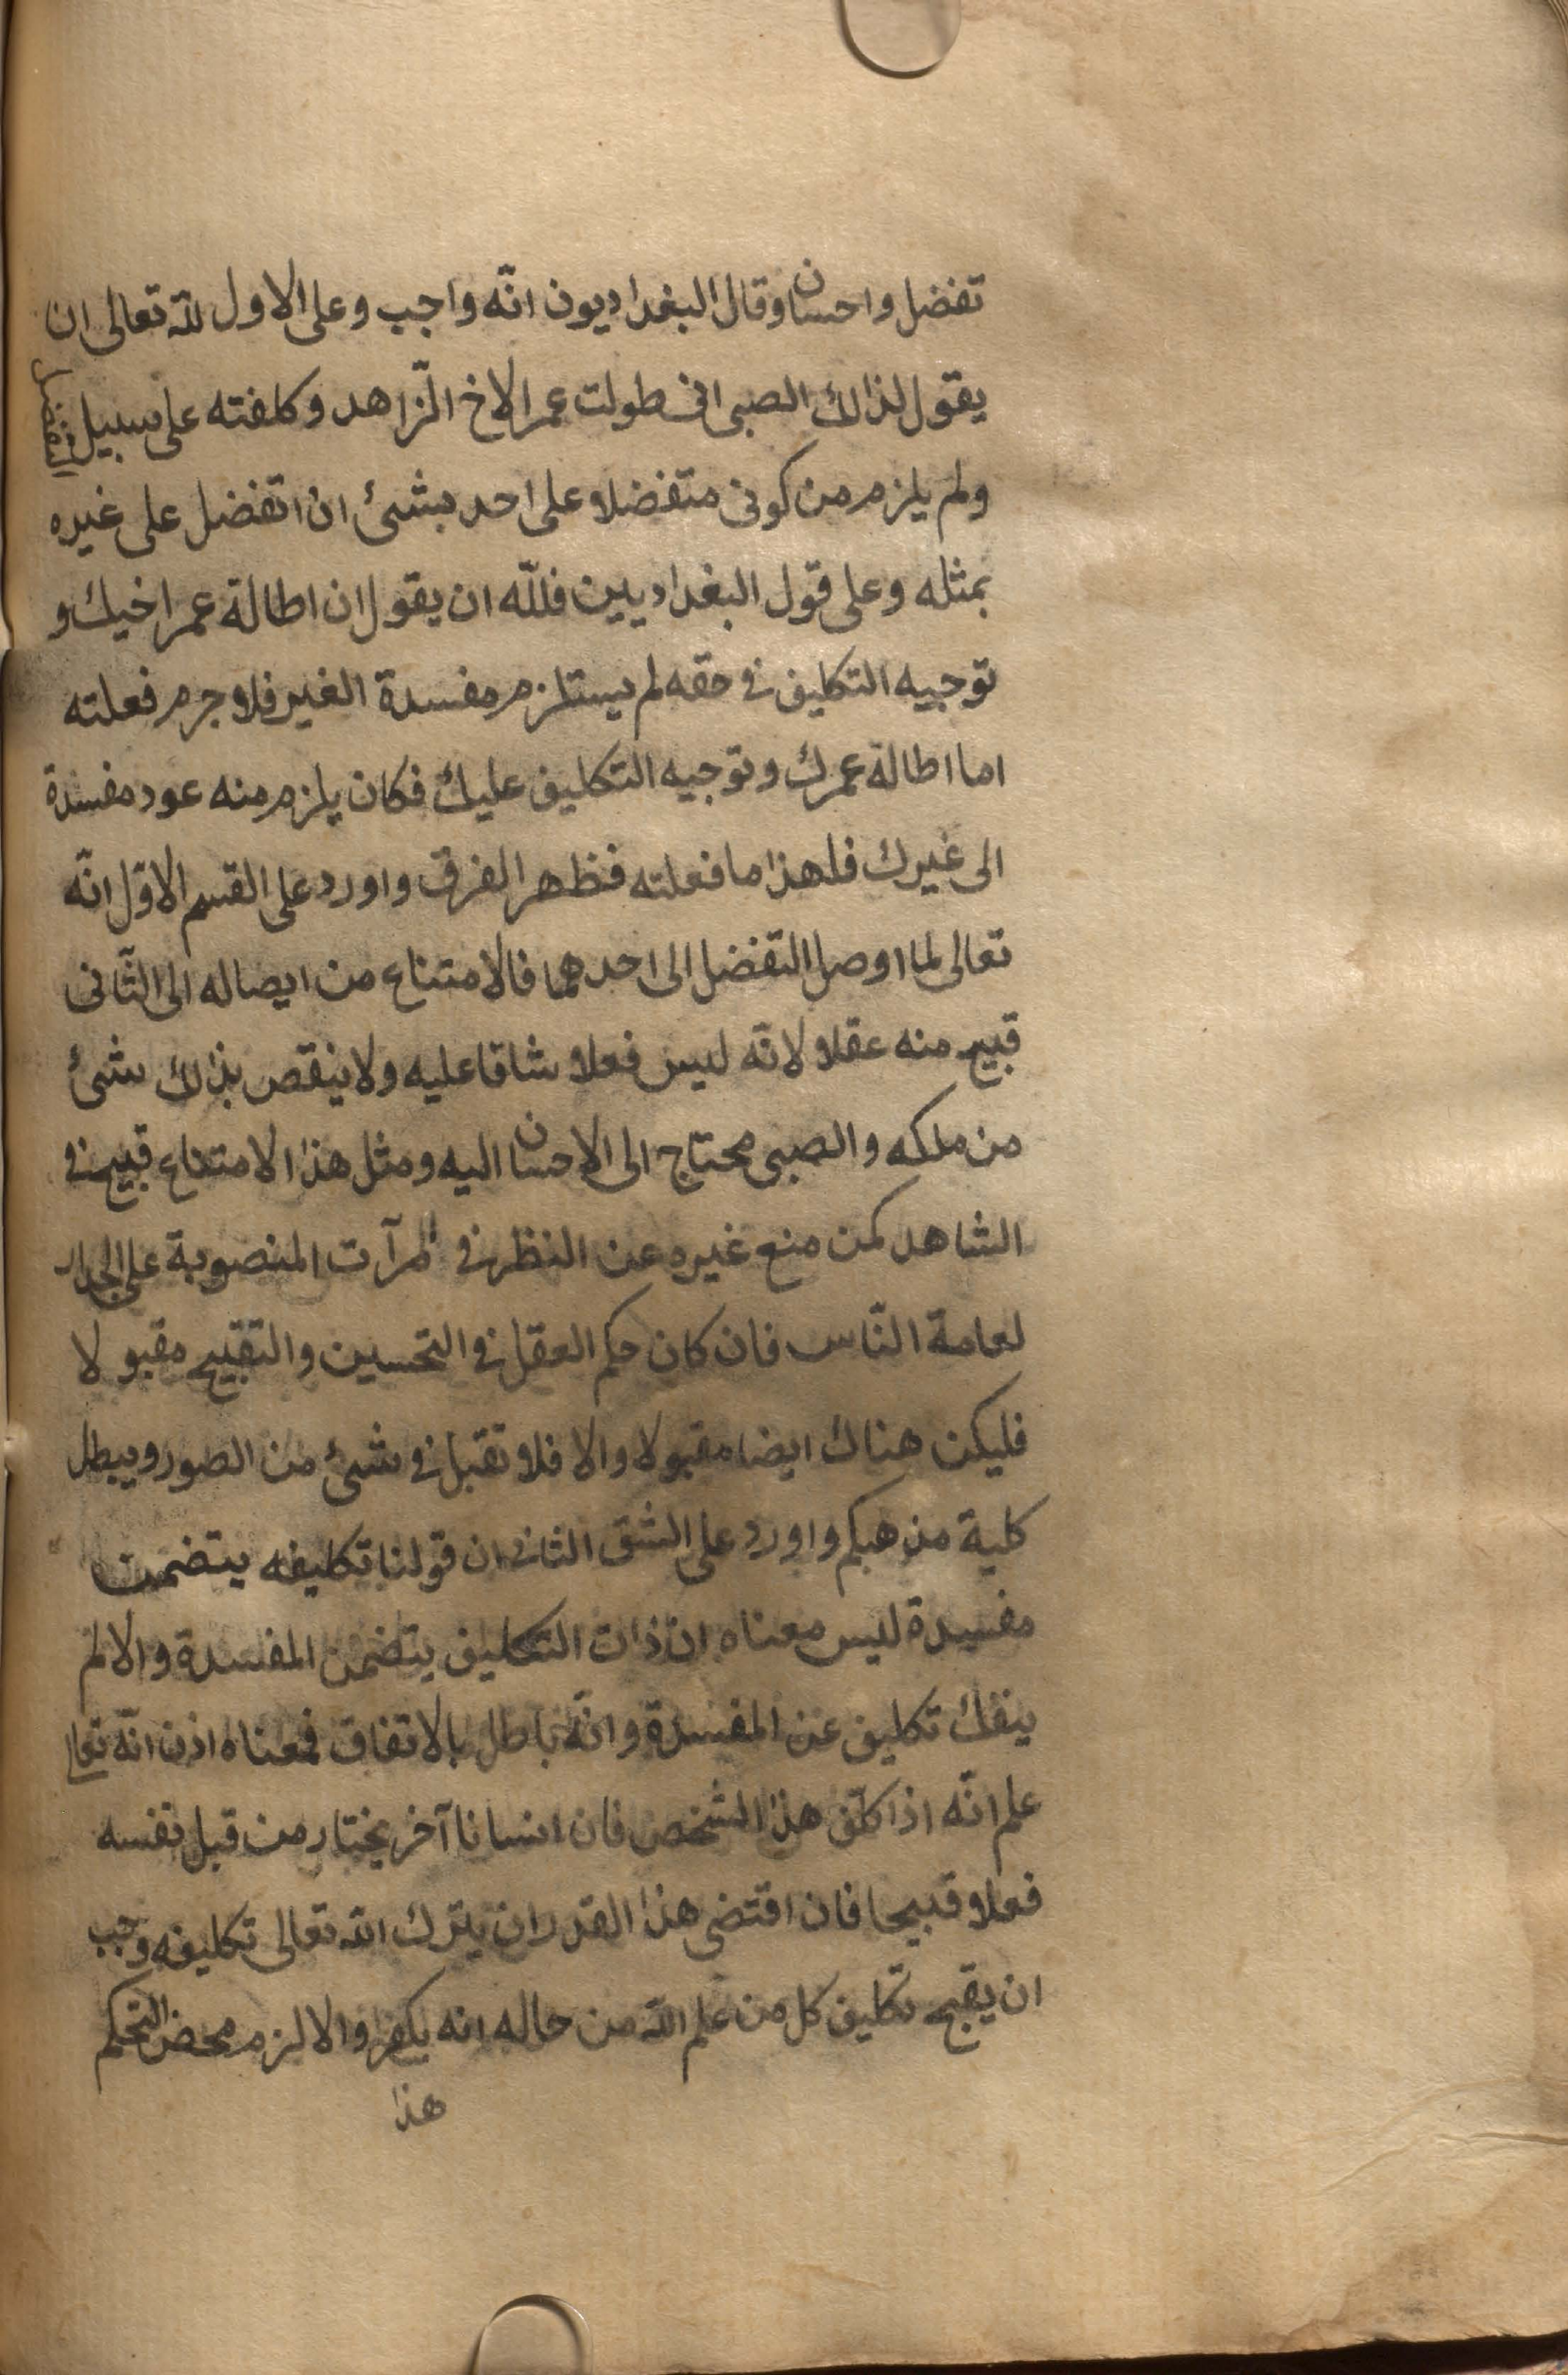 تفضل واحسان وقال البغداديون انّه واجب وعلى الاول لله تعالى ان
يقول لذالك الصبى انى طولت عمر الاخ الزّاهد وكلفته على سبيل التفضل
ولم يلزم من كونى متفضلا على احد بشئ ان اتفضل على غيره
بمثله وعلى قول البغداديين فللّه ان يقول ان اطالة عمر اخيك و
توجيه التكليف فى حقه لم يستلزم مفسدة الغير فلا جرم فعلته
اما اطالة عمرك وتوجيه التكليف عليك فكان يلزم منه عود مفسدة
الى غيرك فلهذا ما فعلته فظهر الفرق واورد على القسم الاوّل انّه
تعالى لما اوصل التفضل الى احدهما فالامتناع من ايصاله الى الثّانى
قبيح منه عقلا لانّه ليس فعلا شاقا عليه ولا ينقص بذلك شئ
من ملكه والصبى محتاج الى الاحسان اليه ومثل هذا الامتناع قبيح فى
الشاهد كمن منع غيره عن النظر فى المرآت المنصوبة على الجدار
لعامة النّاس فان كان حكم العقل فى التحسين والتقبيح مقبولا
فليكن هناك ايضا مقبولا والا فلا تقبل فى شئ من الصور ويبطل
كلية مذهبكم واورد على الشق الثانى ان قولنا تكليفه يتضمن
مفسدة ليس معناه ان ذات التكليف يتضمن المفسدة والا لم
ينفك تكليف عن المفسدة وانّه باطل بالاتفاق فمعناه اذن انّه تعالى
علم انّه اذا كلّف هذا الشخص فان انسانا آخر يختار من قبل نفسه
فعلا قبيحا فان اقتضى هذا القدر ان يترك الله تعالى تكليفه وجب
ان يقبح تكليف كل من علم الله من حاله انه يكفر والا لزم محض التحكم
هذا